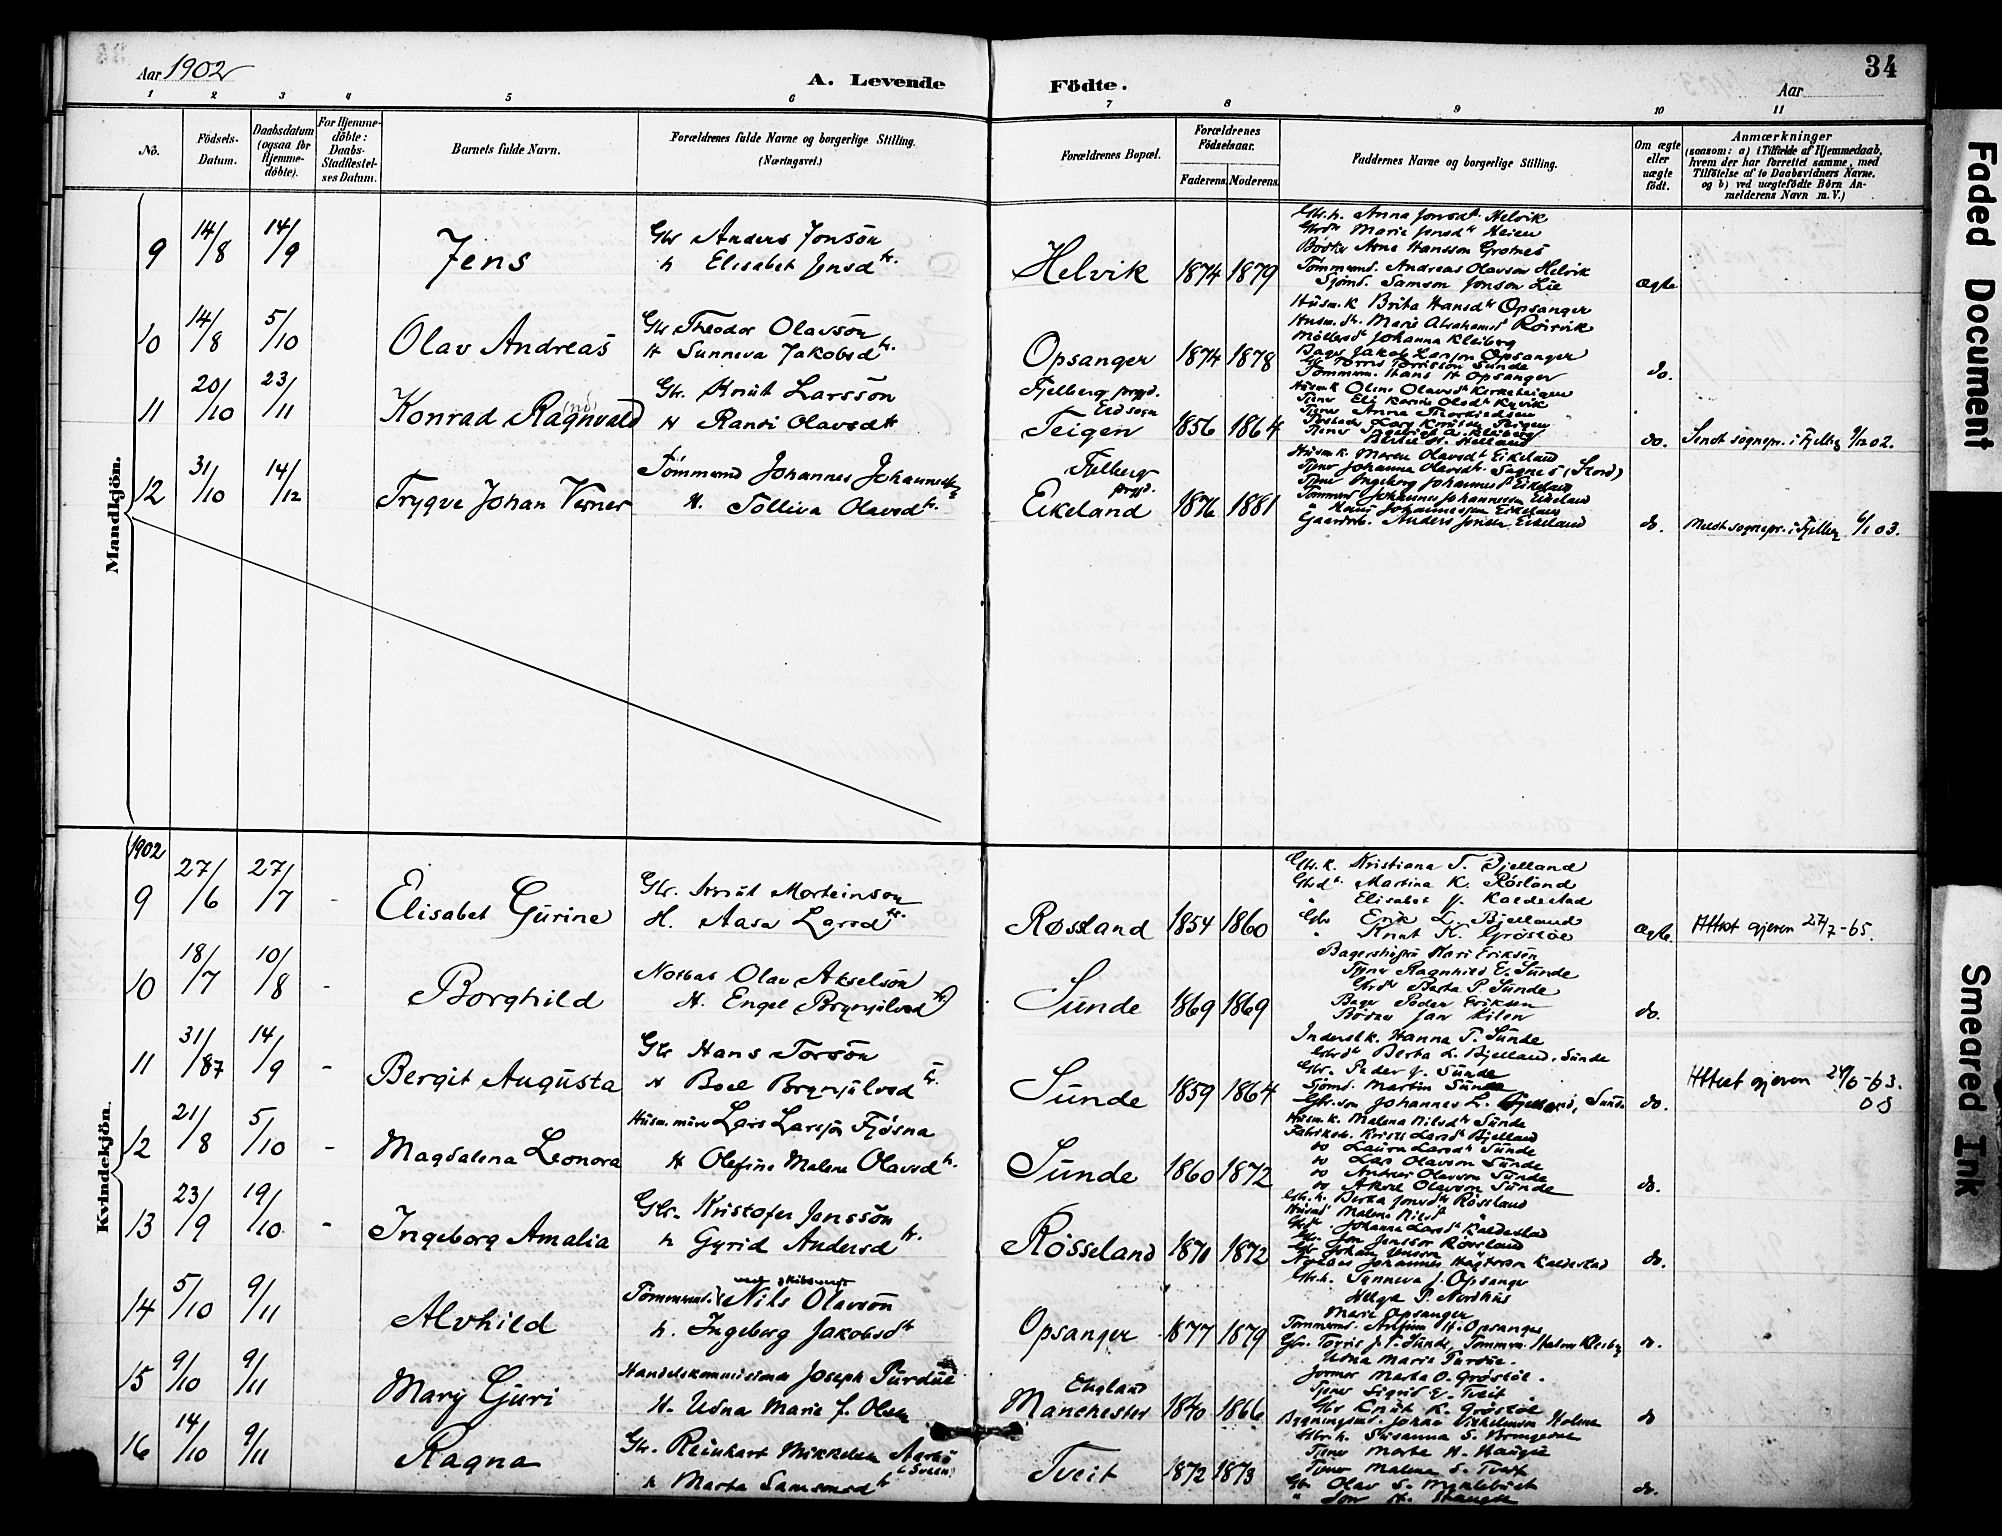 Aar 1902
A. Levende Födte.
34
Aar
1 2 3 4 5 6 7 8 9 10 11
No.
Födsels-Datum.
Daabsdatum (ogsaa for Hjemme-döbte).
For Hjemme-döbte: Daabs-Stadfæstel-ses Datum.
Barnets fulde Navn.
Forældrenes fulde Navne og borgerlige Stilling.
(Næringsvei.)
Forældrenes Bopæl.
Forældrenes Födselsaar.
Faderens. Moderens.
Faddernes Navne og borgerlige Stilling.
Om ægte eller uægte födt.
Anmærkninger
(saasom: a) i Tilfælde af Hjemmedaab,
hvem der har forrettet samme, med
Tilföielse af to Daabsvidners Navne,
og b) ved uægtefödte Börn An-
melderens Navn m. V.)
Mandkjön.
9 14/8 14/9 Jens
Gbr Anders Jonsön
h Elisabet Jensdtr.
Helvik 1874 1879
Gbr.h. Anna Jonsdt. Helvik
Marie Jensdtr Heien
Arne Hansson Grotnes
Tömmermd. Andreas Olavson Helvik
Sjömd. Samson Jonson Lie
ægte
10 14/8 5/10 Olav Andreas
Gbr Theodor Olavsön
H Sunneva Jakobsdtr.
Opsanger 1874 1878
Husm.k Brita Hansdtr Opsanger
Husm.dt. Marie Abrahamsdt Röirvik
Johanna Kleiberg
Bager Jakob Larson Opsanger
Hans H Opsanger
do.
11 20/10 23/11 Konrad Ragnvald
Gbr. Knut Larssön
H Randi Olavsdtr
Fjelberg prgjd.
Eid sogn
Teigen 1856 1864
Husm.k Oline Olavsdt
Tjener Anna
do. Sendt sognepr. i Fjelbg 9/12 02.
12 31/10 14/12 Trygve Johan Verner
Tömmermd Johannes Johannes
H. Tolliva Olavsdtr.
Fjelberg prgjd.
Eikeland 1876 1881
Husm.k. Maren Olavsdt Eikeland
Tjener Johanna Olavsdt. Sagnes (Stord)
Tjener Ingeborg Johannesdt Eikeland
Tömmermd Johannes Johannessen Eikeland
Hans Johannessen Eikeland
Gaardbr. Anders Jonsen Eikeland
do. Meldt sognepr. i Fjelberg 6/1 03.
1902
Kvindekjön.
9 27/6 27/7 - Elisabet Gurine
Gbr. Knut Morteinson
H. Aasa Larsdtr.
Røssland 1854 1860
Gbr.k. Kristiana T. Bjelland
Gbrdt. Martina K. Røsland
" Elisabet J. Kaldestad
Gbr Erik L. Bjelland
" Knut K. Gröstöl
ægte. Attest gjeven 27/7-65.
10 18/7 10/8 - Borghild
Notbas Olav Akselsön
H. Engel Brynjulvsdtr
Sunde 1869 1869
Bagerhustru Kari Eriksen
Tjener Ragnhild E. Sunde
Gbrdtr Berta P. Sunde
Bager Peder Eriksen
Bödker Jan Kilen
do.
11 31/87 14/9 - Bergit Augusta
Gbr Hans Torsön
H Boel Brynjulvsdtr.
Sunde 1859 1864
Inderstk. Hanna T. Sunde
Gbrdt Berta L. Bjelland, Sunde
Gbr. Peder J. Sunde
Sjömd. Martin Sunde
Gbr.sön Johannes L. Bjelland, Sunde
do. Attest gjeven 24/6-63.
OS
12 21/8 5/10 - Magdalena Leonora
Lars Larssön Fjösna
H Olefine Malene Olavsdtr.
Sunde 1860 1872
Husm.k. Malena Nilsdtr Sunde
Larsdt Bjelland
do Laura Larsdt Sunde
do Lars Olavson Sunde
do Andreas Olavson Sunde
do Aksel Olavson Sunde
do.
13 23/9 19/10 - Ingeborg Amalia
Gbr. Kristofer Jonssön
h Gyrid Andersdtr.
Rösseland 1870 1872
Gbr.h. Berta Jonsdtr Rössland
Malene Nilsdt "
Johanna Larsdt Kaldestad
Gbr. Jon Jonsson Rössland
Johannes Kaldestad
do.
14 5/10 9/11 Alvhild
Tömmermd. Nils Olavsön
h. Ingeborg Jakobsdtr
Opsanger 1877 1879
Gbr.h. Synneva J. Opsanger
Helga P. Nordhus
Marie Opsanger
Tömmermd. H. Opsanger
Gbr. Torris J. T. Sunde,
do.
15 9/10 9/11 Mary Guri
Joseph Purdue
H. Udna Marie J. Olsen
England
Manchester 1840 1866
Udna Marie Purdue.
Jormor Marta O. Gröstöl.
Tjener Sigrid E. Tveit
Gbr Knut K. Gröstöl
Bygningsmd. Johan Vilhelmsen Holmen
do
16 14/10 9/11 Ragna
Gbr. Reinhart Mikkelsen
h Marta Samsonsdtr
Tveit 1872 1873
Gbr.h. Susanna S.
Tjener Marta H. Haugse
Tjener Malena S. Tveit
Gbr Olav S.
" Jon H. Haugse
do.
Faded Document
Smeared Ink